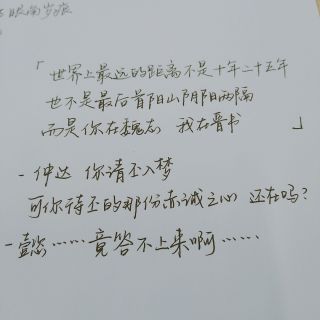 「世界上最远的距离不是十年二十五年
也不是最后首阳山阴阳两隔
而是你在魏志 我在晋书 」
- 仲达 你请丕入梦
可你待丕的那份赤诚之心 还在吗?
- 懿……竟答不上来啊……